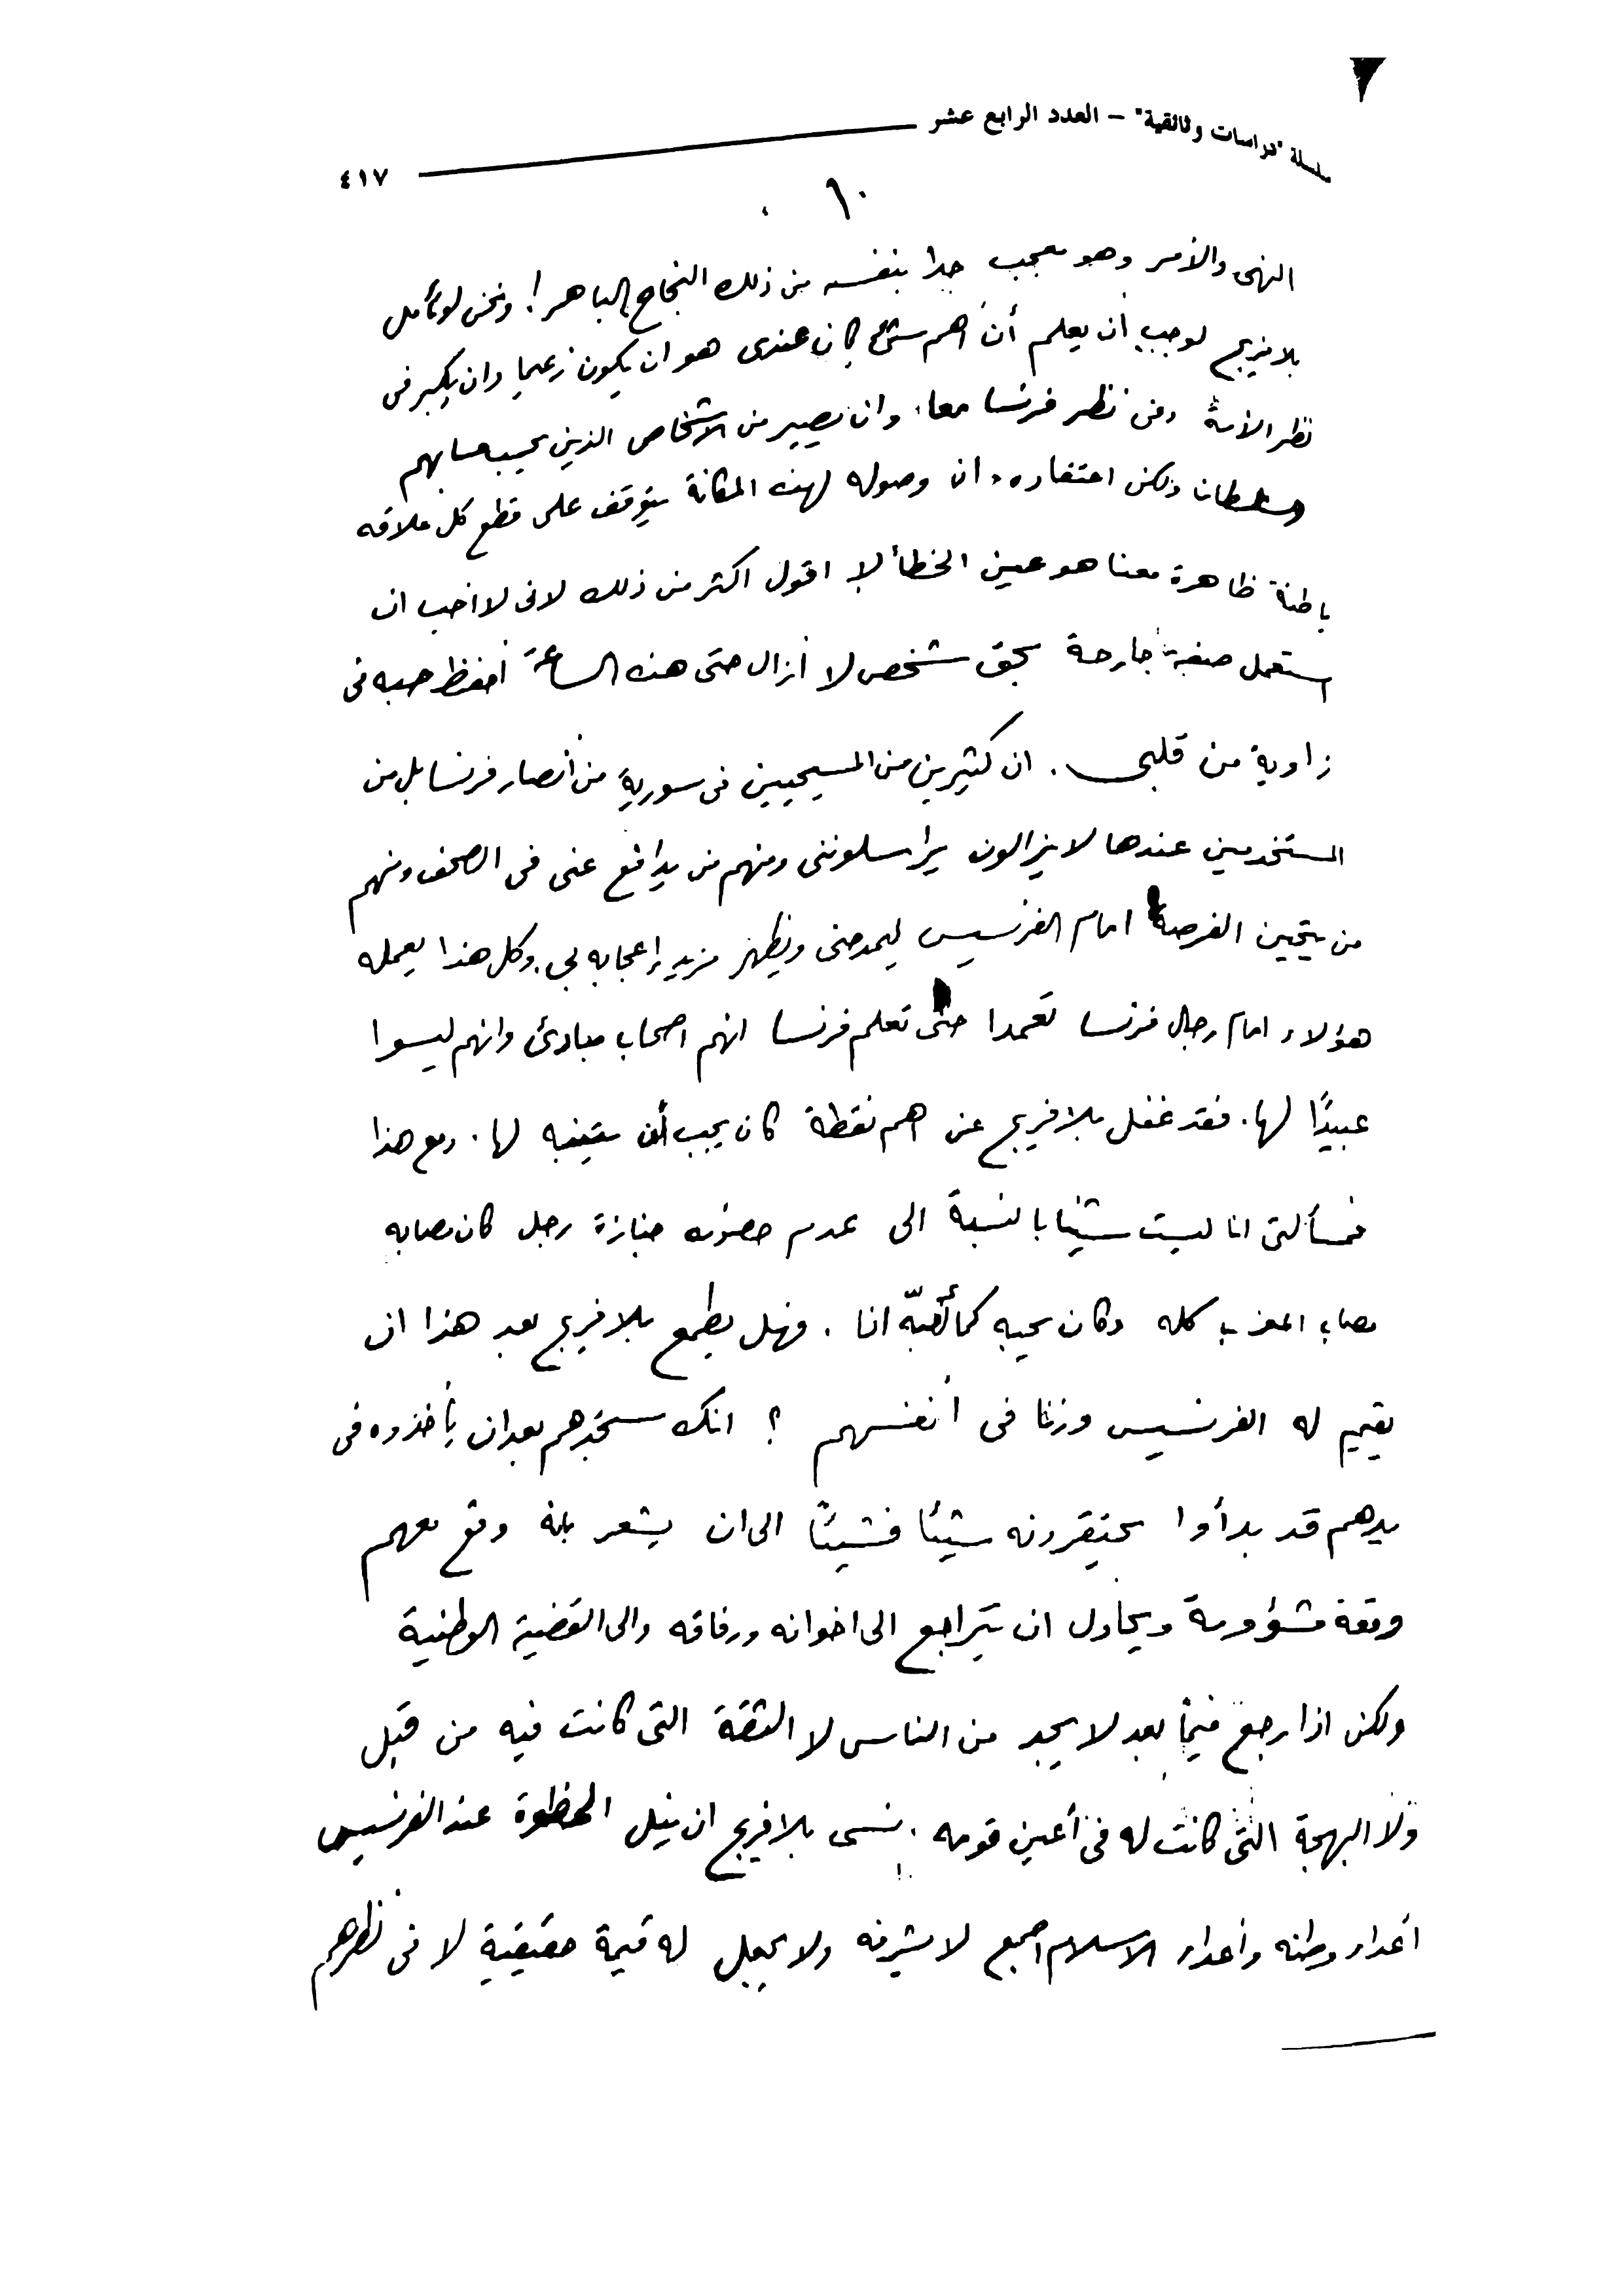 سلسلة "دراسات وثائقية" – العدد الرابع عشر
٤١٧
١٠
النهى والأمر وهو معجب جدا بنفسه من ذلك النجاح الباهر! ونحن لو تأمل
بلافريج لوجب أن يعلم أن أهم شئ كان عندى هو ان يكون زعيما وان يكبر فى
نظر الأمة وفى نظر فرنسا معا، وان يصير من الأشخاص الذين يحسب حسابهم
ولكن اعتقاده ان وصوله لهذه المكانة يتوقف على قطع كل علاقه
باطنة ظاهرة معنا هو عين الخطأ لا اقول اكثر من ذلك لانى لا احب ان
استعمل صفة جارحة بحق شخص لا أزال حتى هذه الساعة أحفظ حبه فى
زاوية من قلبى. ان كثيرين من المسيحيين فى سورية من أنصار فرنسا بل من
المستخدمين عندها لا يزالون يراسلوننى ومنهم من يدافع عنى فى الصحف ومنهم
من يتحين الفرصة امام الفرنسيس ليمدحنى ويظهر مزيد إعجابه بى. وكل هذا يعمله
هؤلاء امام رجال فرنسا تعمدا حتى تعلم فرنسا انهم اصحاب مبادئ وانهم ليسوا
عبيدًا لها. فقد غفل بلافريج عن اهم نقطة كان يجب أن يتنبه لها. ومع هذا
فمسألتى انا ليست شيئا بالنسبة الى عدم حضوره جنازة رجل كان مصابه
مصاب المغرب كله وكان يحبه كما أحبّه انا. فهل يطمع بلافريج بعد هذا ان
يقيم له الفرنسيس وزنا فى أنفسهم ؟ انك ستجدهم بعد ان يأخذوه فى
يدهم قد بدأوا يحتقرونه شيئا فشيئا الى ان يشعر بانه وقع معهم
وقعة مشؤومة ويحاول ان يتراجع الى اخوانه ورفاقه والى القضية الوطنية
ولكن اذا رجع فيما بعد لا يجد من الناس لا الثقة التى كانت فيه من قبل
ولا البهجة التى كانت له فى أعين قومه. نسى بلافريج ان نيل الحظوة عند الفرنسيس
أعداء وطنه وأعداء الاسلام اجمع لا يشرفه ولا يجعل له قيمة حقيقية لا فى نظرهم